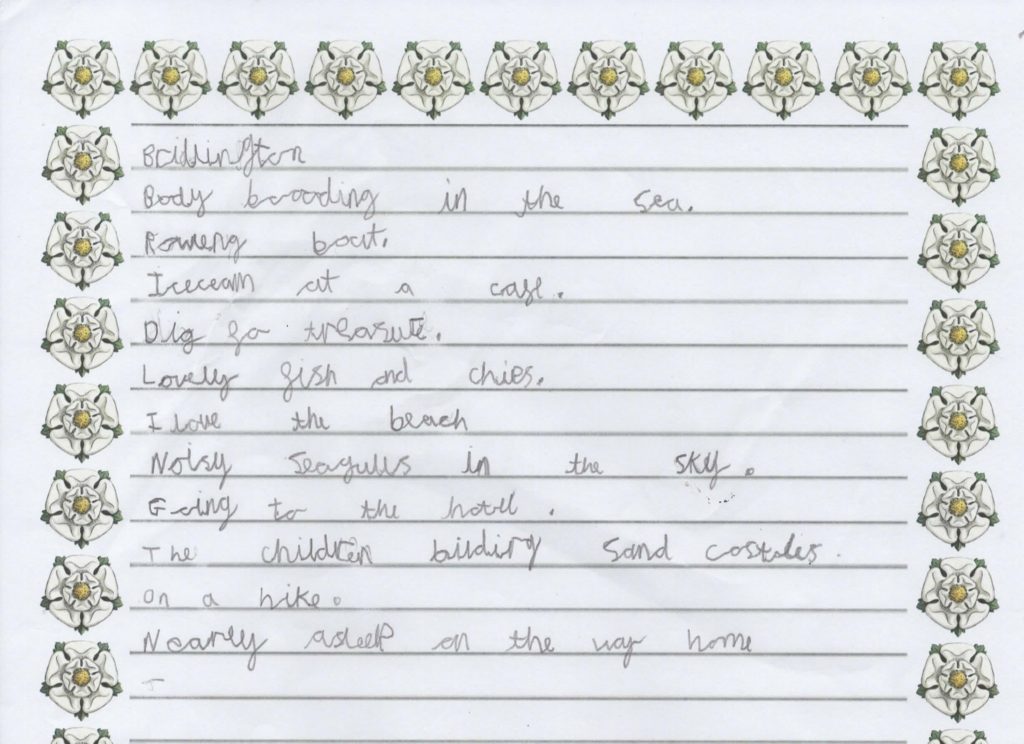 Bridlington
Body boording in the sea.
Roweng boat.
Iceceam at a cafe.
Dig fo treasure.
Lovely fish and chies.
I love the beach
Noisy seagulls in the sky.
Going to the hotel.
The children building sand costales.
on a hike.
Nearly asleep on the way home